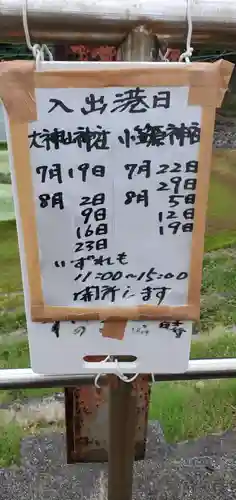 入出港日
大神山神社 小嶺神社
7月19日 7月22日
29日
8月 2日 8月 5日
9日 12日
16日 19日
23日
いずれも
11:00〜15:00
開所します